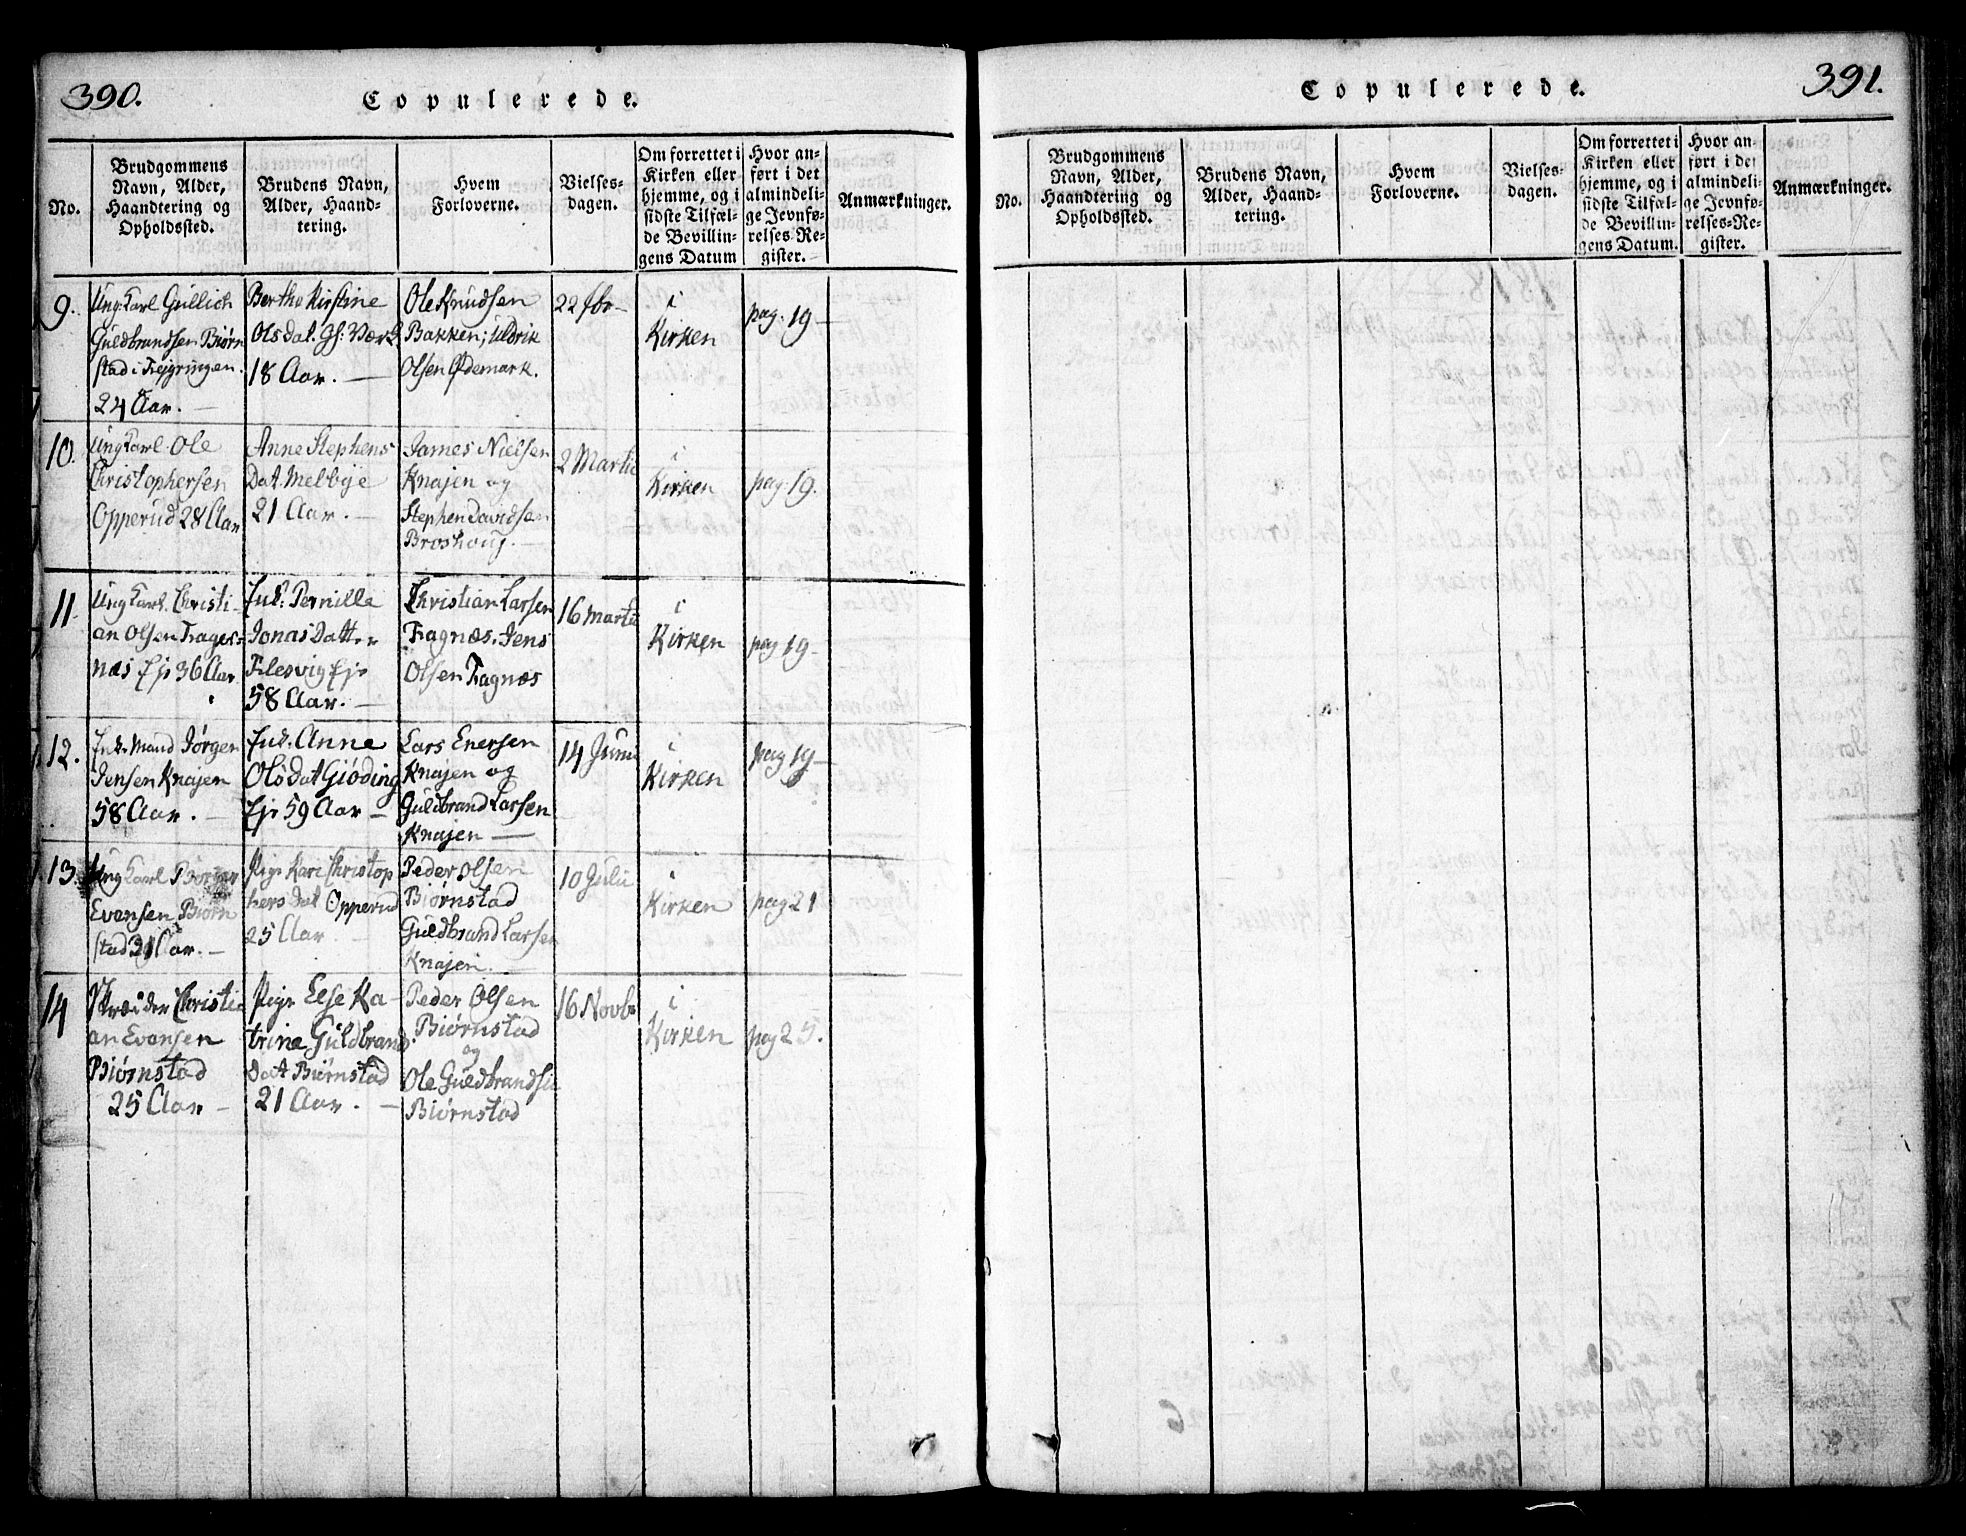 390.
Copulerede.
No.
Brudgommens
Navn, Alder,
Haandtering og
Opholdssted.
Brudens Navn,
Alder, Haand-
tering.
Hvem
Forloverne.
Vielses-
dagen.
Om forrettet i
Kirken eller
hjemme, og i
sidste Tilfæl-
de Bevillin-
gens Datum
Hvor an-
ført i det
almindeli-
ge Jevnfø-
relses-Re-
gister.
Anmærkninger.
9.
Ung Karl Gullich
Guldbrandsen Biørn
stad i
24 Aar.
Berthe Kirstine
Olsdat.
18 Aar.
Ole Knudsen
Bakken; Uldrik
Olsen Ødemark.
22
i
Kirken
pag. 19
10.
Ung Karl Ole
Christophersen
Opperud 28 Aar
Anne Stephens
Dat. Melbye
21 Aar.
James Nielsen
Knajen og
Stephen Davidsen
Broshoug.
2 Martii
i
Kirken
pag. 19.
11.
Ung Karl. Christi-
an Olsen Trages-
næs Ejr 36 Aar
Enk: Pernille
Jonas Datter
Flesvig Ejr
58 Aar.
Christian Larsen
Tragnæs. Jens
Olsen Tragnæs
16 Martii
i
Kirken
pag 19
12.
Enk. Mand Jørgen
Jensen Knajen
58 Aar.
Enk. Anne
Olsdat Giøding
Ejr 59 Aar
Lars Enersen
Knajen og
Guldbrand Larsen
Knajen
14 Juni
i
Kirken
pag 19
13.
Ung Karl
Evensen Biørn
stad Aar.
Pige Kari Christop
hers dat Opperud
25 Aar
Peder Olsen
Biørnstad
Guldbrand Larsen
Knajen.
10 Julii
i
Kirken
pag 21
14
Christi
an Evensen
Biørnstad
25 Aar
Pige Else Ka-
trine Guldbrands
dat Biørnstad
21 Aar.
Peder Olsen
Biørnstad
og
Ole Guldbrandsen
Biørnstad
16 Novbr
i
Kirken
pag 25.
391.
Copulerede.
No.
Brudgommens
Navn, Alder,
Haandtering og
Opholdssted.
Brudens Navn,
Alder, Haand-
tering.
Hvem
Forloverne.
Vielses-
dagen.
Om forrettet i
Kirken eller
hjemme, og i
sidste Tilfæl-
de Bevillin-
gens Datum.
Hvor an-
ført i det
almindeli-
ge Jevnfø-
relses-Re-
gister.
Anmærkninger.